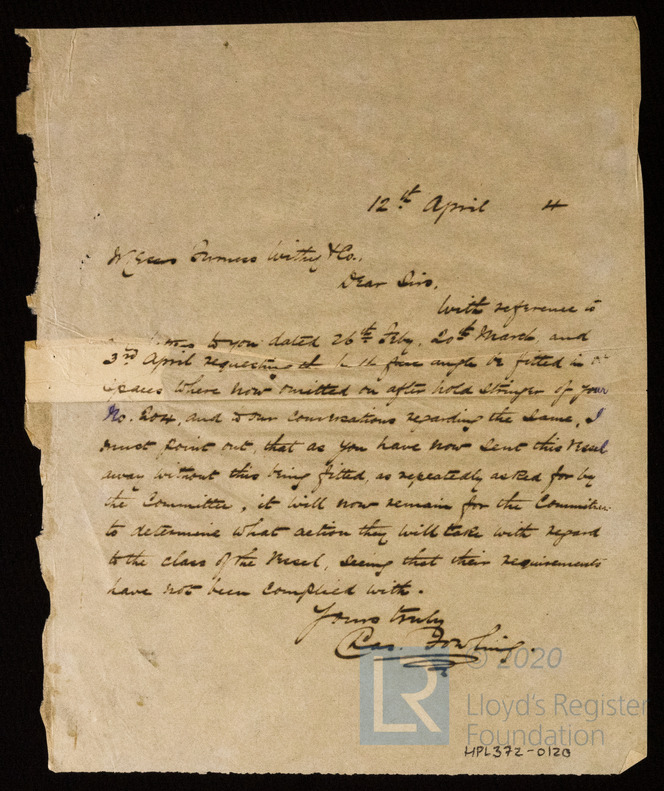 12th April 4
Messrs Furness Withy & Co.,
Dear Sirs,
With reference to
to you dated 26th Feby, 20th March, and
3rd April requesting that the face angle be fitted in
spaces where now omitted on after hold stringer of your
No. 204, and to our conversations regarding the same, I
must point out, that as you have now sent this vessel
away without this being fitted, as repeatedly asked for by
the Committee, it will now remain for the Committee
to determine what action they will take with regard
to the class of the vessel, seeing that their requirements
have not been complied with.
Yours truly
Chas. Dowling.
© 2020
LR
Lloyd's Register
Foundation
HPL372-0120